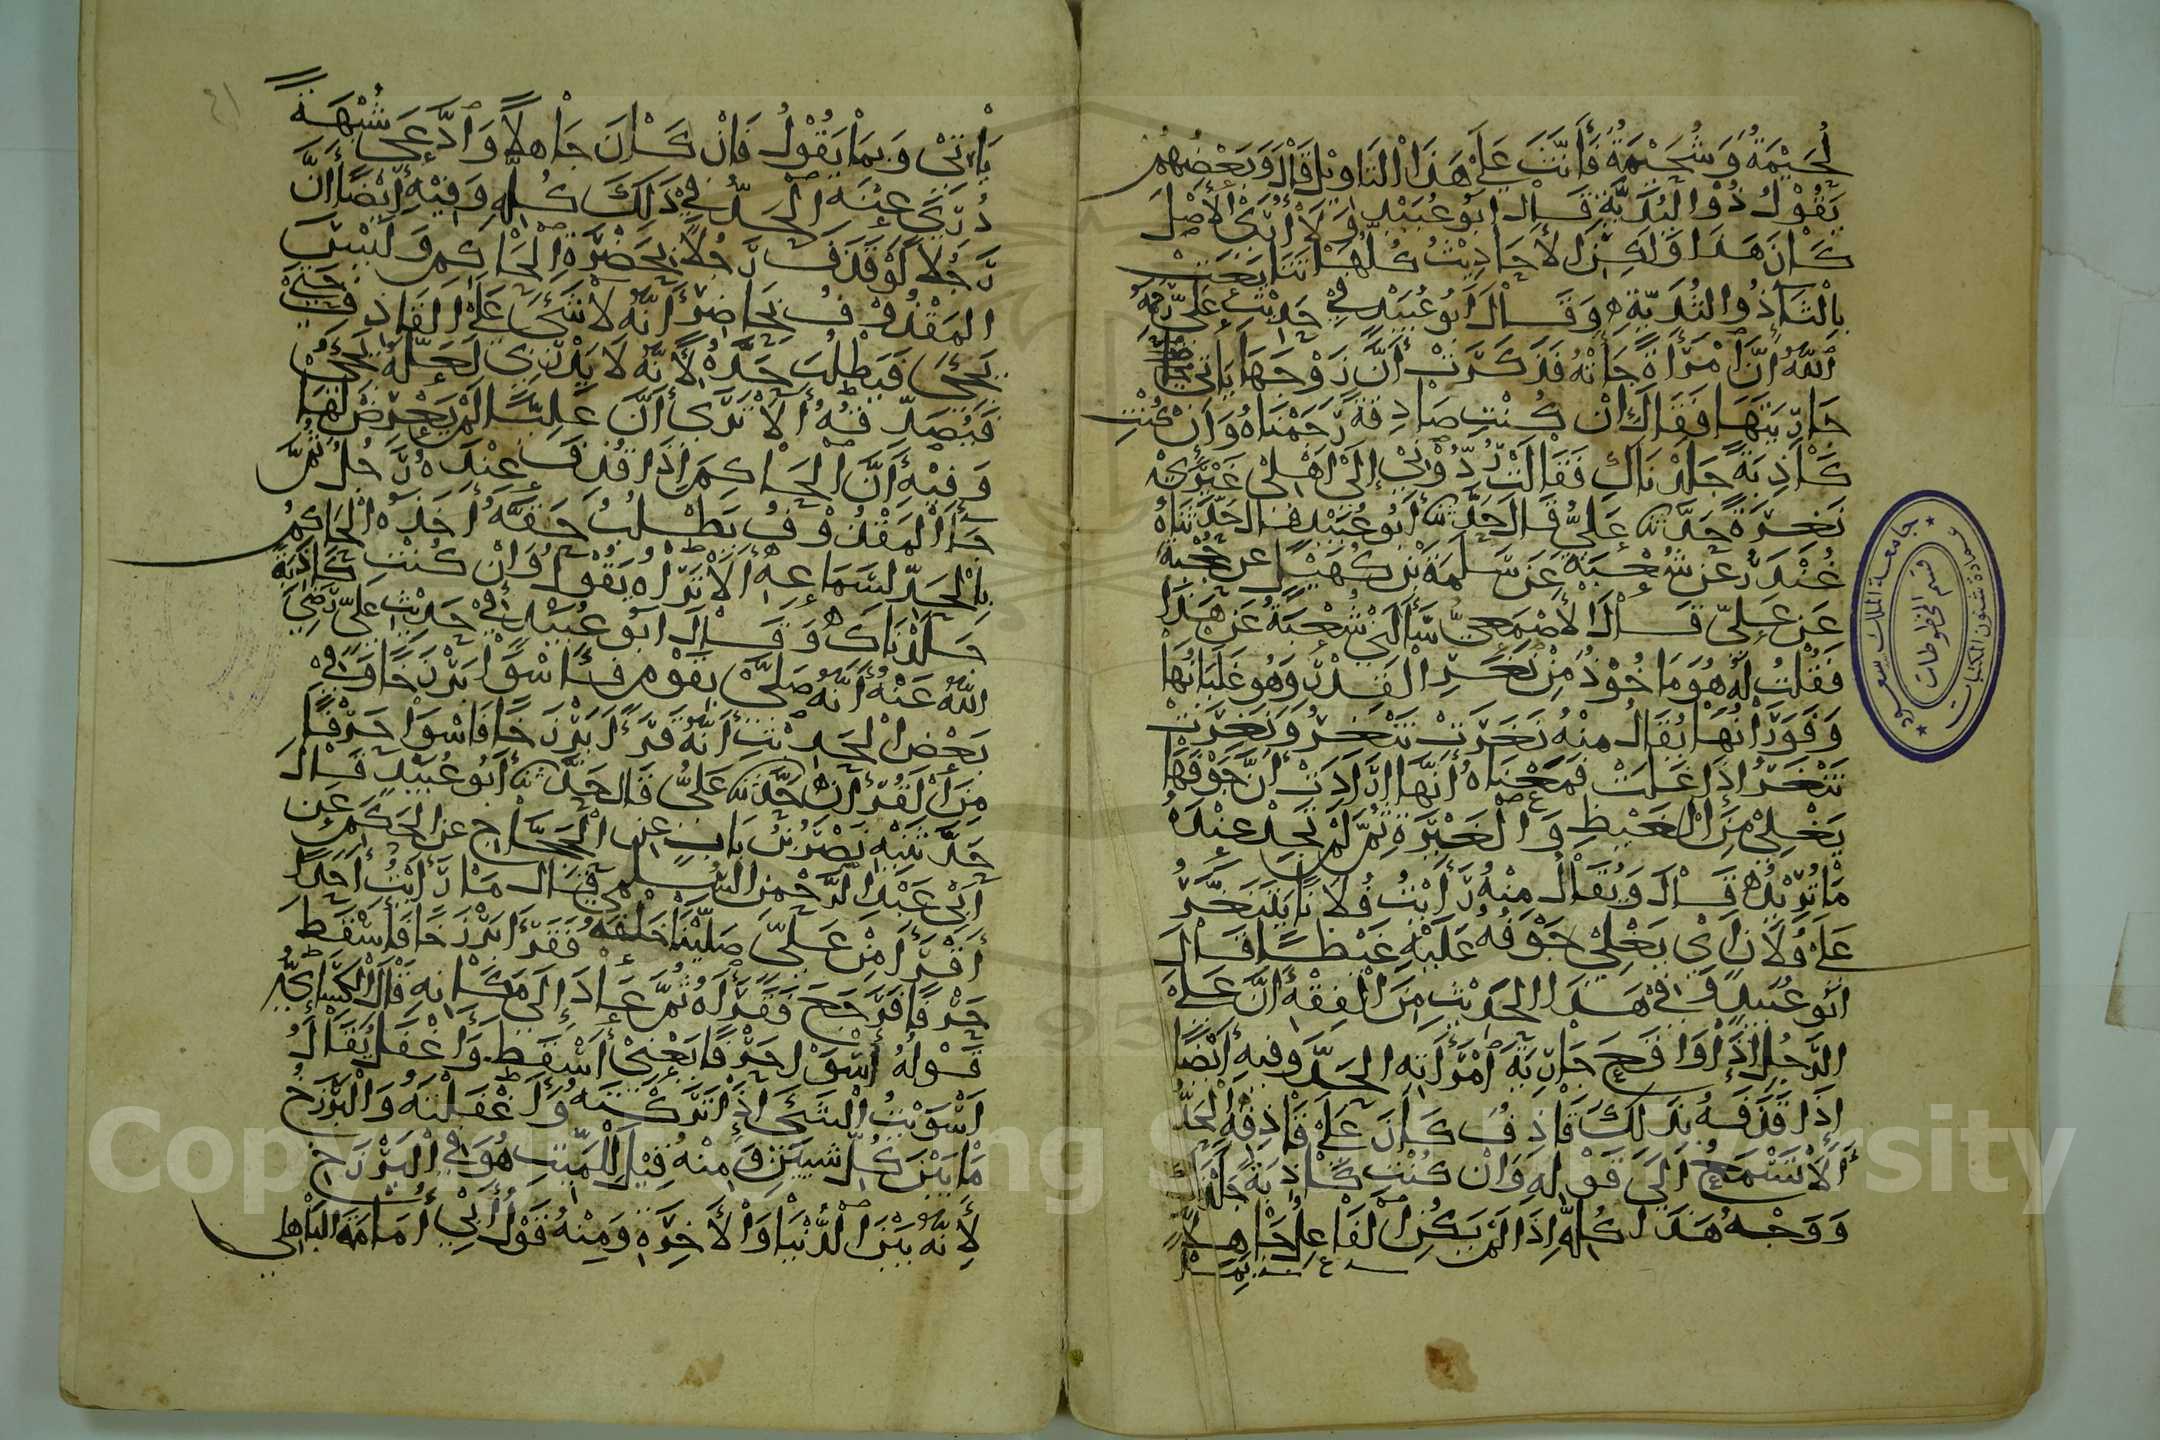 لُحَيْمَةُ وَشُحَيْمَةُ فَأَنَّثَ عَلَىٰ هَذَا التَّاوِيْلِ قَالَ وَبَعْضُهُمْ
يَقُوْلُ ذُوْالْيُدَيَّةِ قَالَ ابُوعُبَيْدٍ وَلَا أُرَىْ الْأَصْلَ
كَانَ هَذَا وَلَكِنِ الْأَحَادِيْثُ كُلُّهَا تَتَابَعَتْ
بِالثَّاءِ ذُو الثُّدَيَّةِ ه وَقَالَ أَبُوعُبَيْدٍ فِيْ حَدِيْثِ عَلِيٍّ رَحِمَهُ
اللَّهُ انَّ امْرَأَةً جَاءَتْهُ فَذَكَرَتْ أَنَّ زَوْجَهَا يَأْتِيْ
جَارِيَتَهَا فَقَالَ انْ كُنْتِ صَادِقَةً رَجَمْنَاهُ وَانْ كُنْتِ
كَاذِبَةً جَلَدْنَاكِ فَقَالَتْ رُدُّوْنِيْ إِلَىْ اهْلِيْ غَيْرَىْ
نَغِرَةً حَدَّثَنَا عَلِيٌّ قَالَ حَدَّثَنَا أَبُوعُبَيْدٍ قال حَدَّثَنَاهُ
غُنْدَرٌ عَنْ شُعْبَةَ عَنْ سَلَمَةَ بْنِ كُهَيْلٍ عن حُجَيَّةَ
عَنْ عَلِيٍّ قَالَ الْأَصْمَعِيُّ سَأَلَنِيْ شُعْبَةُ عَنْ هَذَا
فَقُلْتُ لَهُ هُوَ مَاخُوْذٌ مِنْ نَغَرِ الْقِدْرِ وَهُوَ غَلَيَانُهَا
وَفَوَرَانُهَا يُقَالُ مِنْهُ نَغَرَتْ تَنْغَرُ وَنَغِرَتْ
تَنْغَرُ اذَا غَلَتْ فَمَعْنَاهُ أَنَّهَا ارَادَتْ أَنَّ جَوْفَهَا
يَغْلِيْ مِنَ الْغَيْظِ وَالْغَيْرَةِ ثُمَّ لَمْ تَجِدْ عِنْدَهُ
مَاتُرِيْدُ ه قَالَ وَيُقَالُ مِنْهُ رَأَيْتُ فُلَانًا يَتَنَغَّرُ
عَلَىٰ فُلَانٍ أَيْ يَغْلِيْ جَوْفُهُ عَلَيْهِ غَيْظًا قَالَ
ابُوعُبَيْدٍ وَفِيْ هَذَا الْحَدِيْثِ مِنَ الْفِقْهِ أَنَّ عَلَىْ
الرَّجُلِ إِذَا وَاقَعَ جَارِيَةَ امْرَأَتِهِ الْحَدَّ وَفِيْهِ أَيْضًا
إِذَا قَذَفَهُ بِذَلِكَ قَاذِفٌ كَانَ عَلَىٰ قَاذِفِهِ الْحَدُّ
أَلَا تَسْمَعُ إِلَى قَوْلِهِ وَانْ كُنْتِ كَاذِبَةً جَلَدْنَاكِ
وَوَجْهُ هَذَا كُلِّهِ إِذَا لَمْ يَكُنِ الْفَاعِلُ جَاهِلًا
بِمَا
يَأْتِيْ وَبِمَا يَقُوْلُ فَانْ كَانَ جَاهِلًا وَادَّعَى شُبْهَةً
دُرِئَ عَنْهُ الْحَدُّ فِيْ ذَلِكَ كُلِّهِ وَفِيْهِ أَيْضًا أَنَّ
رَجُلًا لَوْ قَذَفَ رَجُلًا بِحَضْرَةِ الْحَاكِمِ وَلَيْسَ
الْمَقْذُوْفُ بِحَاضِرٍ أَنَّهُ لَا شَيْءَ عَلَى الْقَاذِفِ حَتَّىْ
يَجِيْءَ فَيَطْلُبَ حَدَّهُ لِأَنَّهُ لَا يَدْرِيْ لَعَلَّهُ يَجِيْءُ
فَيُصَدِّقُهُ أَلَا تَرَىْ أَنَّ عَلِيًّا لَمْ يَعْرِضْ لَهَا
وَفِيْهِ أَنَّ الْحَاكِمَ إِذَا قُذِفَ عِنْدَهُ رَجُلٌ ثُمَّ
جَاءَ الْمَقْذُوْفُ يَطْلُبُ حَقَّهُ أَخَذَهُ الْحَاكِمُ
بِالْحَدِّ لِسَمَاعِهِ أَلَا تَرَاهُ يَقُوْلُ وَانْ كُنْتِ كَاذِبَةً
جَلَدْنَاكِ ه وَقَالَ ابُوعُبَيْدٍ فِيْ حَدِيْثِ عَلِيٍّ رَضِيَ
اللَّهُ عَنْهُ أَنَّهُ صَلَّى بِقَوْمٍ فَأَسْوَىْ بَرْزَخًا وَفِيْ
بَعْضِ الْحَدِيْثِ أَنَّهُ قَرَأَ بَرْزَخًا فَاسْوَىْ حَرْفًا
مِنَ الْقُرْآنِ حَدَّثَنَا عَلِيٌّ قَالَ حَدَّثَنَا أَبُوعُبَيْدٍ قَالَ
حَدَّثَنِيْهِ نَصْرُ بْنُ بَابٍ عن الْحَجَّاجِ عن الْحَكَمِ عَنْ
ابِيْ عَبْدِ الرَّحْمٰنِ السُّلَمِيِّ قَالَ مَا رَأَيْتُ أَحَدًا
أَقْرَأَ مِنْ عَلِيٍّ صَلَّيْنَا خَلْفَهُ فَقَرَأَ بَرْزَخًا فَأَسْقَطَ
حَرْفًا فَرَجَعَ فَقَرَأَهُ ثُمَّ عَادَ إِلَى مَكَانِهِ قَالَ الْكِسَائِيُّ
قَوْلُهُ أَسْوَىْ حَرْفًا يَعْنِيْ أَسْقَطَ وَأَغْفَلَ يُقَالُ
اسْوَيْتُ الشَّيْءَ اذَا تَرَكْتَهُ وَأَغْفَلْتَهُ وَالْبَرْزَخُ
مَا بَيْنَ كُلِّ شَيْئَيْنِ وَمِنْهُ قِيْلَ لِلْمَيِّتِ هُوَ فِيْ الْبَرْزَخِ
لِأَنَّهُ بَيْنَ الدُّنْيَا وَالْأَخِرَةِ وَمِنْهُ قَوْلُ أَبِيْ أُمَامَةَ الْبَاهِلِي
جامعة الملك سعود
عمادة شئون المكتبات
قسم المخطوطات
Copyright © King Saud University